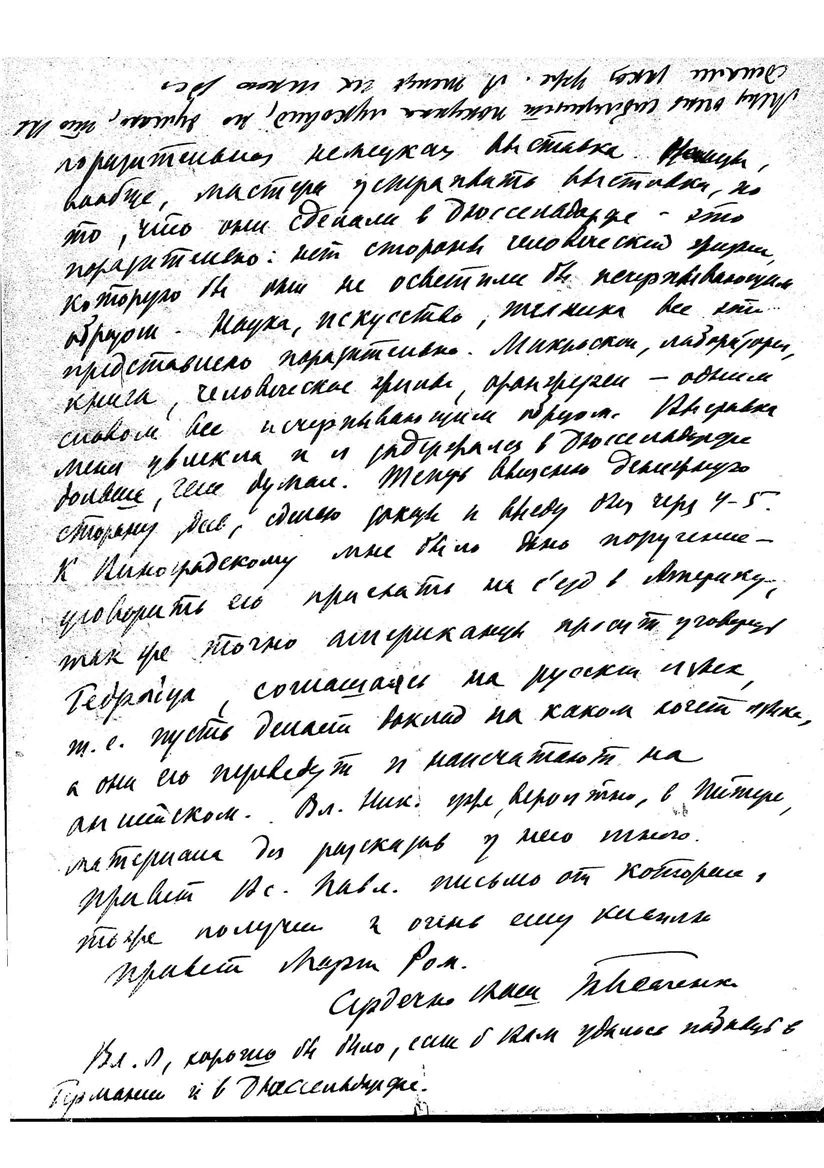 поразительная немецкая выставка. Немцы,
вообще, мастера устраивать выставки, но
то, что они сделали в Дюссельдорфе – это
поразительно: нет стороны человеческой жизни,
которую бы они не осветили бы исчерпывающим
образом. Наука, искусство, техника все это
представлено поразительно. Микроскоп, лаборатория,
книга, человеческое жилье, оранжереи – одним
словом все исчерпывающим образом. Выставка
меня увлекла и я задержался в Дюссельдорфе
больше, чем думал. Теперь выясню денежную
сторону дела, сделаю и выеду через 4–5.
К Виноградскому мне было дано поручение –
уговорить его приехать на с'езд в Америку,
так же точно американцы просят уговорить
Гедройца, соглашаясь на русский язык,
т. е. пусть делает доклад на каком хочет языке,
а они его переведут и напечатают на
английском. Вл. Ник. уже, вероятно, в Питере,
материала для рассказов у него много.
Привет Вс. Павл. письмо от которого
тоже получил и очень ему
Привет Марии Ром.
Сердечно Ваш
Вл. Л, хорошо бы было, если б Вам удалось побывать в
Германии и в Дюссельдорфе.
Мы очень покупка, но думаю, что Вы
сделали уже. А теперь их много